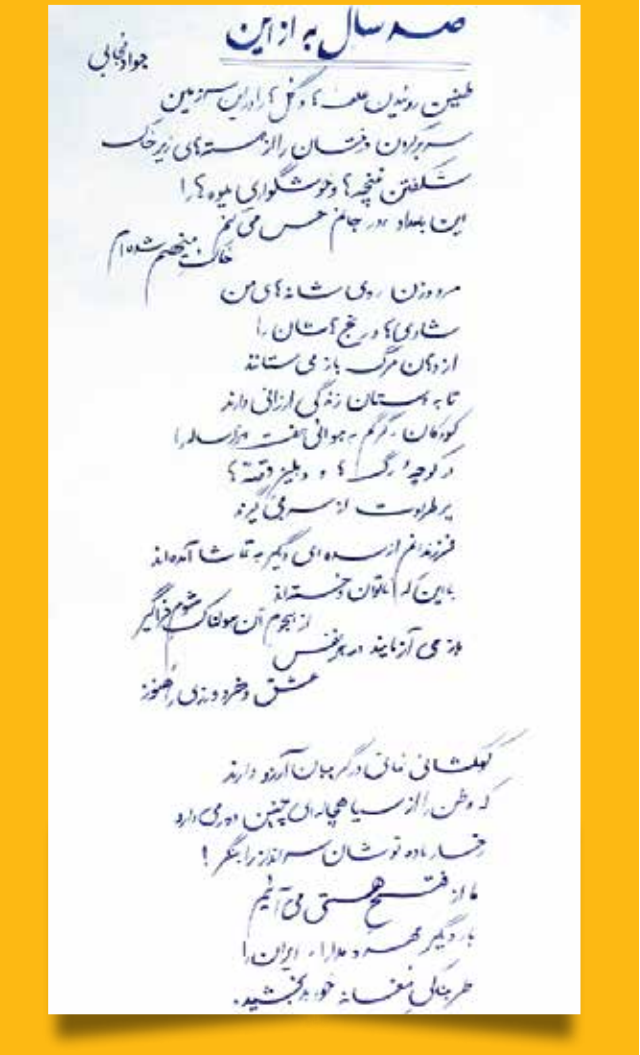 صد سال به از این
جواد مجابی
طنین روئیدن علف ها و گل ها را در این سرزمین
سر برکردن درختان را از هسته های زیر خاک
شکفتن غنچه ها و خوشگواری میوه ها را
این بامداد در جانم حس می کنم
خاک منبسم شده ام
مرد و زن روی شانه های من
شادی ها و رنج هاشان را
از دهان مرگ باز می ستانند
تا به زندگی ارزانی دارند
کودکان جوانی هفت هزارساله را
در کوچه رگ ها و دهلیز ها
پر طراوت از سر می گیرند
فرزندانم از سده ای دیگر به تماشا آمده اند
با این که ناتوان و خسته اند
از هجوم آن هولناک شوم فراگیر
باز می آزمایند در هر نفس
عشق و خردورزی را هنوز
کهکشانی در گریبان آرزو دارند
که وطن را از سیاهچاله ای چنین دور می دارد
رخسار باده نوشان سرانداز را بنگر !
ما از فتح هستی می آئیم
بار دیگر مهر و مدارا ایران را
به خود بخشید.